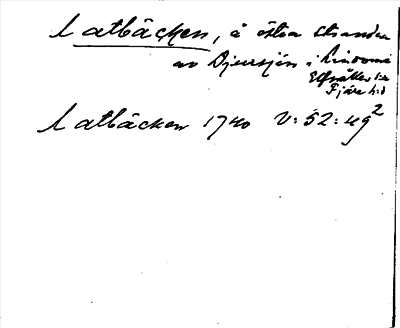 Latbäcken, å östra stranden
av Djursjön i Lindome
Fjäre hd
Latbäcken 1740 V:52:49²